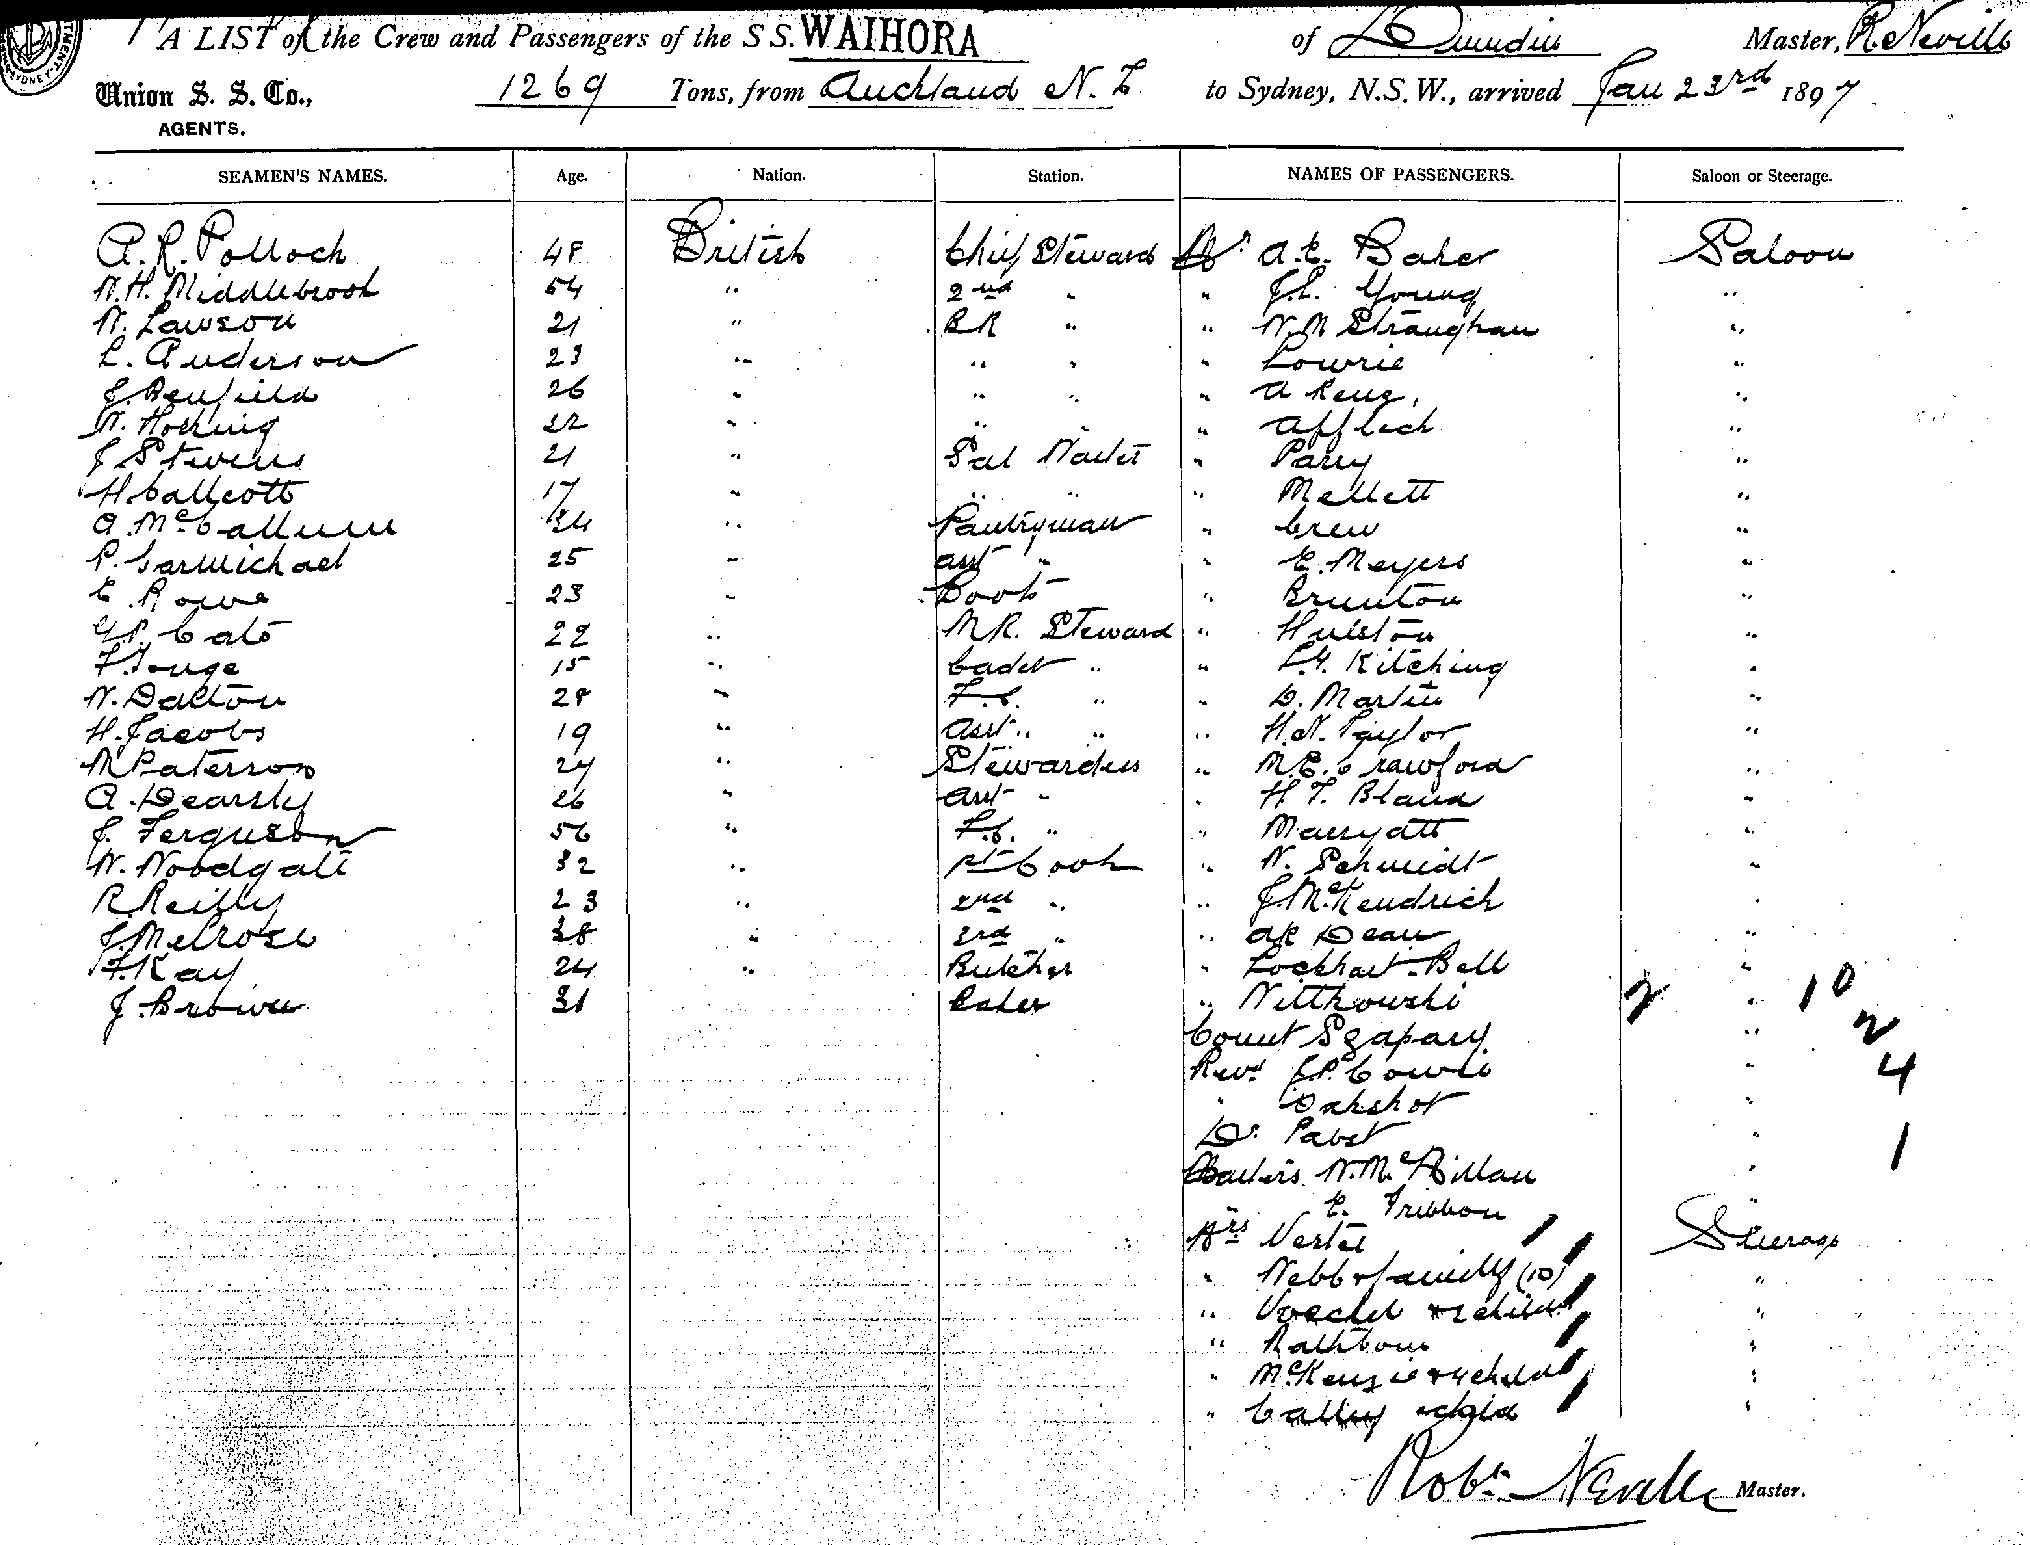 A LIST of the Crew and Passengers of the S S. WAIHORA of Dunedin Master, R Neville
Union S. S. Co., 1269 Tons, from Auckland N. Z. to Sydney, N.S.W., arrived Jan 23rd 1897
AGENTS.
SEAMEN'S NAMES. Age. Nation. Station. NAMES OF PASSENGERS. Saloon or Steerage.
A. R. Pollock 48 British Chief Steward Mr A. E. Baker Saloon
W. H. Middlebrook 54 " 2nd " " J. L. Young "
W. Lawson 21 " B R " " W. M Straughan "
L. Anderson 23 " " " " Lowrie "
J. Benfield 26 " " " " A "
W. Hocking 22 " " " Affleck "
J Stevens 21 " Sal Waiter " Parry "
H Callcott 17 " " " " Mellett "
A. McCallum 34 " Pantryman " Crew "
P. Carmichael 25 " Asst " " E. Meyers "
E. Rowe 23 " Boots " Brunton "
G. P. Cato 22 " M R. Steward " Hulston "
F. 15 " Cadet " " Kitching "
W. Dalton 28 " F.C. " " D. Martin "
H. Jacobs 19 " Asst " " " H. N. Taylor "
M Paterson 27 " Stewardess " M. E. Crawford "
A. Dearsly 26 " Asst " " H. F. Bland "
J. Ferguson 56 " F.C. " " Marryatt "
W. Woodgate 32 " 1st Cook " W. Schmidt "
R. Reilly 23 " 2nd " " J. McKendrick "
J. Melrose 38 " 3rd " " Dean "
F. Kay 24 " Butcher " Lockhart-Bell "
J. Brown 31 " Baker " Wittkowski 2 " 10
Count Szapary " 2
Revd J. P. Cowie " 4
" Oakshot "
Dr. Pabst " 1
Masters W. McMillan "
" E. Gribbon "
Mrs Steerage
" Webb & family (10) "
" & 2 child "
" Rathbone "
" McKenzie & 4 child "
" & child "
Robt. Neville Master.